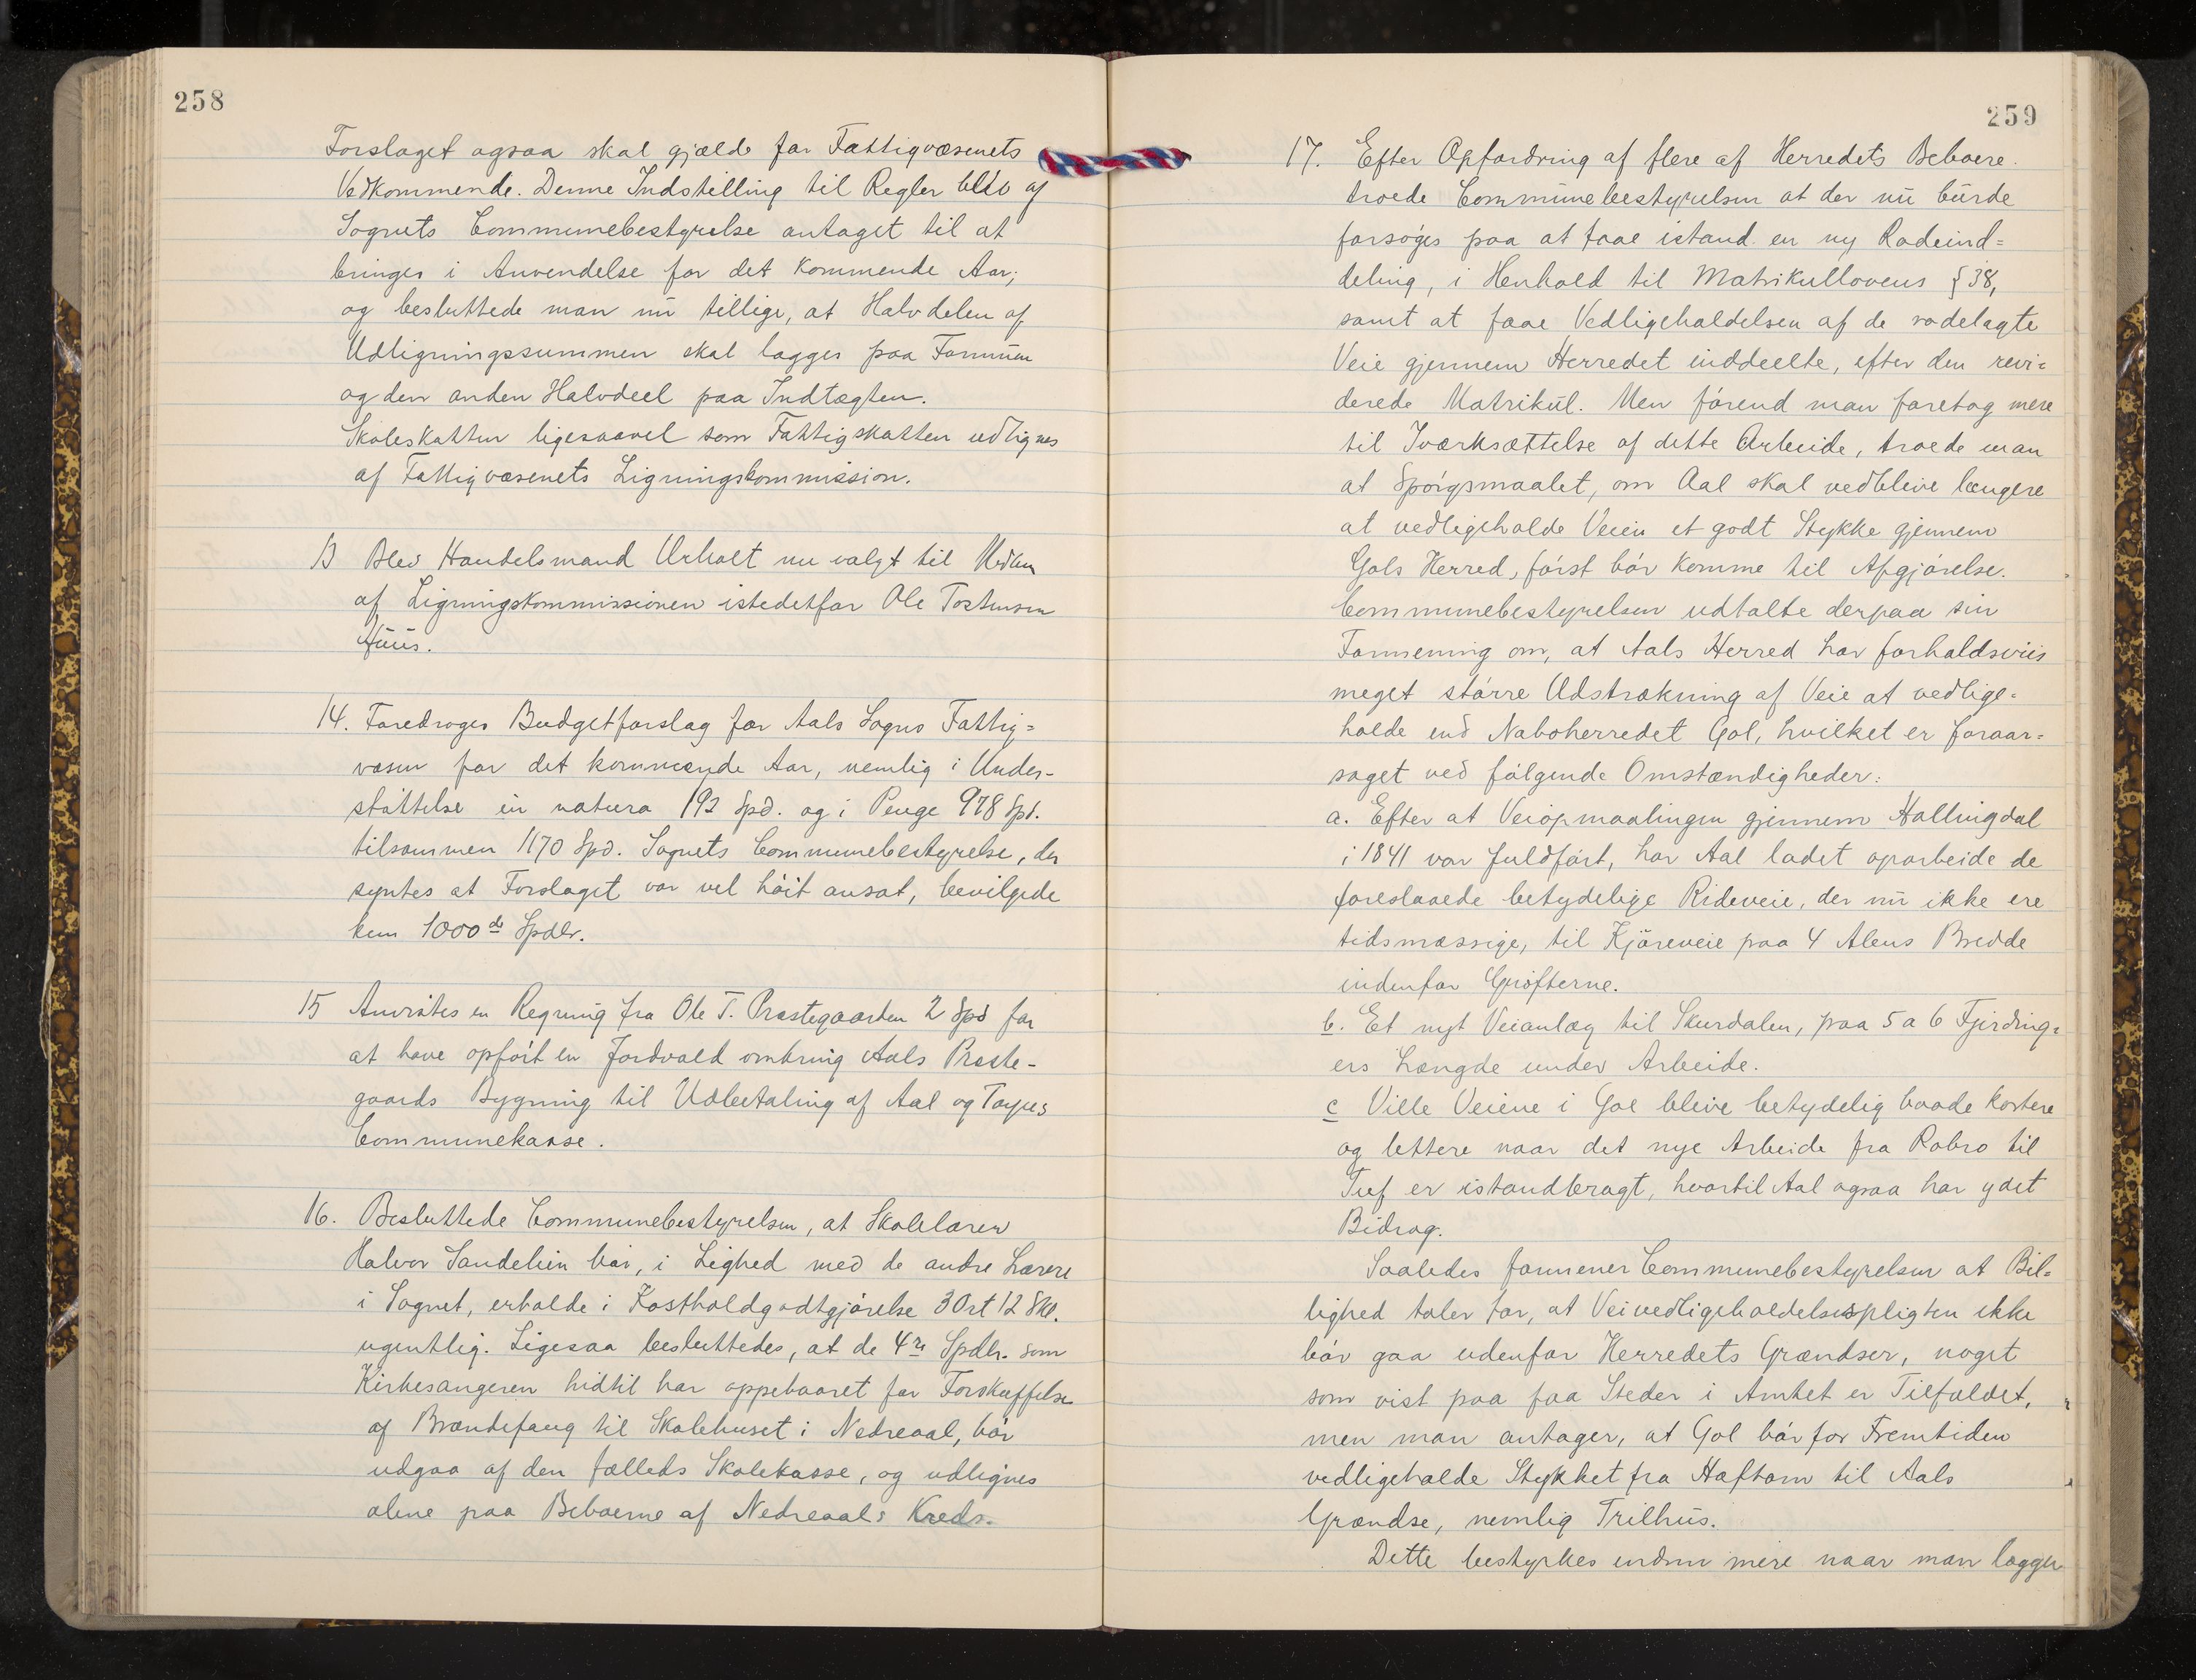 258
Forslaget ogsaa skal gjælde for Fattigvæsenets
Vedkommende. Denne Indstilling til Regler blev af
Sognets Communebestyrelse antaget til at
bringes i Anvendelse for det kommende Aar;
og besluttede man nu tillige, at Halvdelen af
Udligningssummen skal lægges paa Formuen
og den anden Halvdeel paa Indtægten.
Skoleskatten ligesaavel som Fattigskatten udlignes
af Fattigvæsenets Ligningskommission.
13 Blev Handelsmand Urholt nu valgt til Medlem
af Ligningskommissionen istedetfor Ole Tostensen
Huus.
14. Foredroges Budgetforslag for Aals Sogns Fattig=
væsen for det kommende Aar, nemlig i Under-
støttelse in natura 192 Spd. og i Penge 978 Spd.
tilsammen 1170 Spd. Sognets Communebestyrelse, der
syntes at Forslaget var vel høit ansat, bevilgede
kun 1000de Spdlr.
15 Anvistes en Regning fra Ole T. Præstegaarden 2 Spd for
at have opført en Jordvold omkring Aals Præste-
gaards Bygning til Udbetaling af Aal og Torpes
Communekasse.
16. Besluttede Communebestyrelsen, at Skolelærer
Halvor Sandelien bør, i Lighed med de andre Lærere
i Sognet, erholde i Kostholdgodtgjørelse 3 Ort 12 Sk.
ugentlig. Ligesaa besluttedes, at de 4re Spdlr. som
Kirkesangeren hidtil har oppebaaret for Forskaffelse
af Brændefang til Skolehuset i Nedreaal, bør
udgaa af den fælleds Skolekasse, og udlignes
alene paa Beboerne af Nedreaals Kreds.
259
17. Efter Opfordring af flere af Herredets Beboere
troede Communebestyrelsen at der nu burde
forsøges paa at faae istand en ny Rodeind=
deling, i Henhold til Matrikullovens § 38,
samt at faae Vedligeholdelsen af de rodelagte
Veie gjennem Herredet inddeelte, efter den revi=
derede Matrikul. Men førend man foretog mere
til Iværksættelse af dette Arbeide, troede man
at Spørgsmaalet, om Aal skal vedblive længere
at vedligeholde Veien et godt Stykke gjennem
Gols Herred, først bør komme til Afgjørelse.
Communebestyrelsen udtalte derpaa sin
Formening om, at Aals Herred har forholdsviis
meget større Udstrækning af Veie at vedlige=
holde end Naboherredet Gol, hvilket er foraar=
saget ved følgende Omstændigheder:
a. Efter at Veiopmaalingen gjennem Hallingdal
i 1841 var fuldført, har Aal ladet oparbeide de
foreslaaede betydelige Rideveie, der nu ikke ere
tidsmæssige, til Kjøreveie paa 4 Alens Bredde
indenfor Grøfterne.
b. Et nyt Veianlæg til Skurdalen, paa 5 a 6 Fjerding=
ers Længde under Arbeide.
c Ville Veiene i Gol blive betydelig baade kortere
og lettere naar det nye Arbeide fra Robro til
Tuf er istandbragt, hvortil Aal ogsaa har ydet
Bidrag.
Saaledes formener Communebestyrelsen at Bil=
lighed taler for, at Veivedligeholdelsespligten ikke
bør gaa udenfor Herredets Grændser, noget
som vist paa faa Steder i Amtet er Tilfældet,
men man antager, at Gol bør for Fremtiden
vedligeholde Stykket fra Haftorn til Aals
Grændse, nemlig Trilhus.
Dette bestyrkes endnu mere naar man lægger